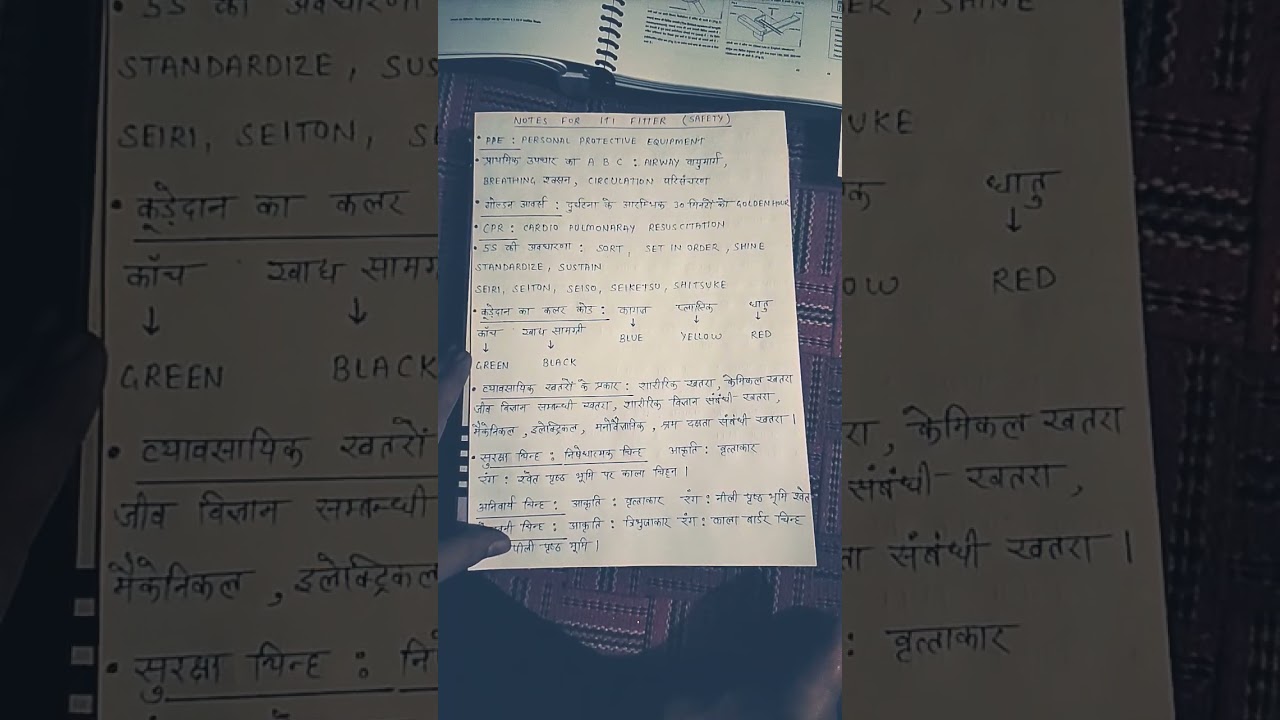 NOTES FOR ITI FITTER (SAFETY)
• PPE : PERSONAL PROTECTIVE EQUIPMENT
• प्राथमिक उपचार का A B C : AIRWAY वायुमार्ग,
BREATHING श्वसन, CIRCULATION परिसंचरण
• गोल्डन आवर्स : दुर्घटना के आरम्भिक 30 मिनटों को GOLDEN HOUR
• CPR : CARDIO PULMONARAY RESUSCITATION
• 5S की अवधारणा : SORT, SET IN ORDER, SHINE
STANDARDIZE, SUSTAIN
SEIRI, SEITON, SEISO, SEIKETSU, SHITSUKE
• कूड़ेदान का कलर कोड : कागज प्लास्टिक धातु
काँच खाद्य सामग्री ↓ ↓ ↓
↓ ↓ BLUE YELLOW RED
GREEN BLACK
• व्यावसायिक खतरों के प्रकार : शारीरिक खतरा, केमिकल खतरा
जीव विज्ञान सम्बन्धी खतरा, शारीरिक विज्ञान संबंधी खतरा,
मैकेनिकल, इलेक्ट्रिकल, मनोवैज्ञानिक, श्रम दक्षता संबंधी खतरा।
• सुरक्षा चिन्ह : निषेधात्मक चिन्ह आकृति : वृत्ताकार
रंग : श्वेत पृष्ठ भूमि पर काला चिह्न।
अनिवार्य चिन्ह : आकृति : वृत्ताकार रंग : नीली पृष्ठ भूमि श्वेत
चिन्ह : आकृति : त्रिभुजाकार रंग : काला बार्डर चिन्ह
पीली पृष्ठ भूमि।